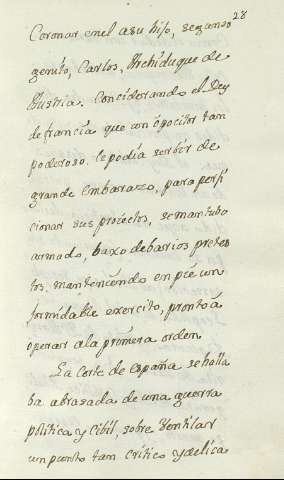 28
Coronar enel a su hijo, segundo
genito, Carlos, Archiduque de
Austria. Conciderando el Rey
de francia que un opocitor tan
poderoso, le podia serbir de
grande embarazo, para perfi
cionar sus proiectos, se mantubo
armado, baxo de barios pretex
tos, manteniendo en pie un
formidable exercito, pronto â
operar a la primera orden
La Corte de españa se halla
ba abrasada de una guerra
politica y Cibil, sobre Ventilar
un punto tan critico y delica